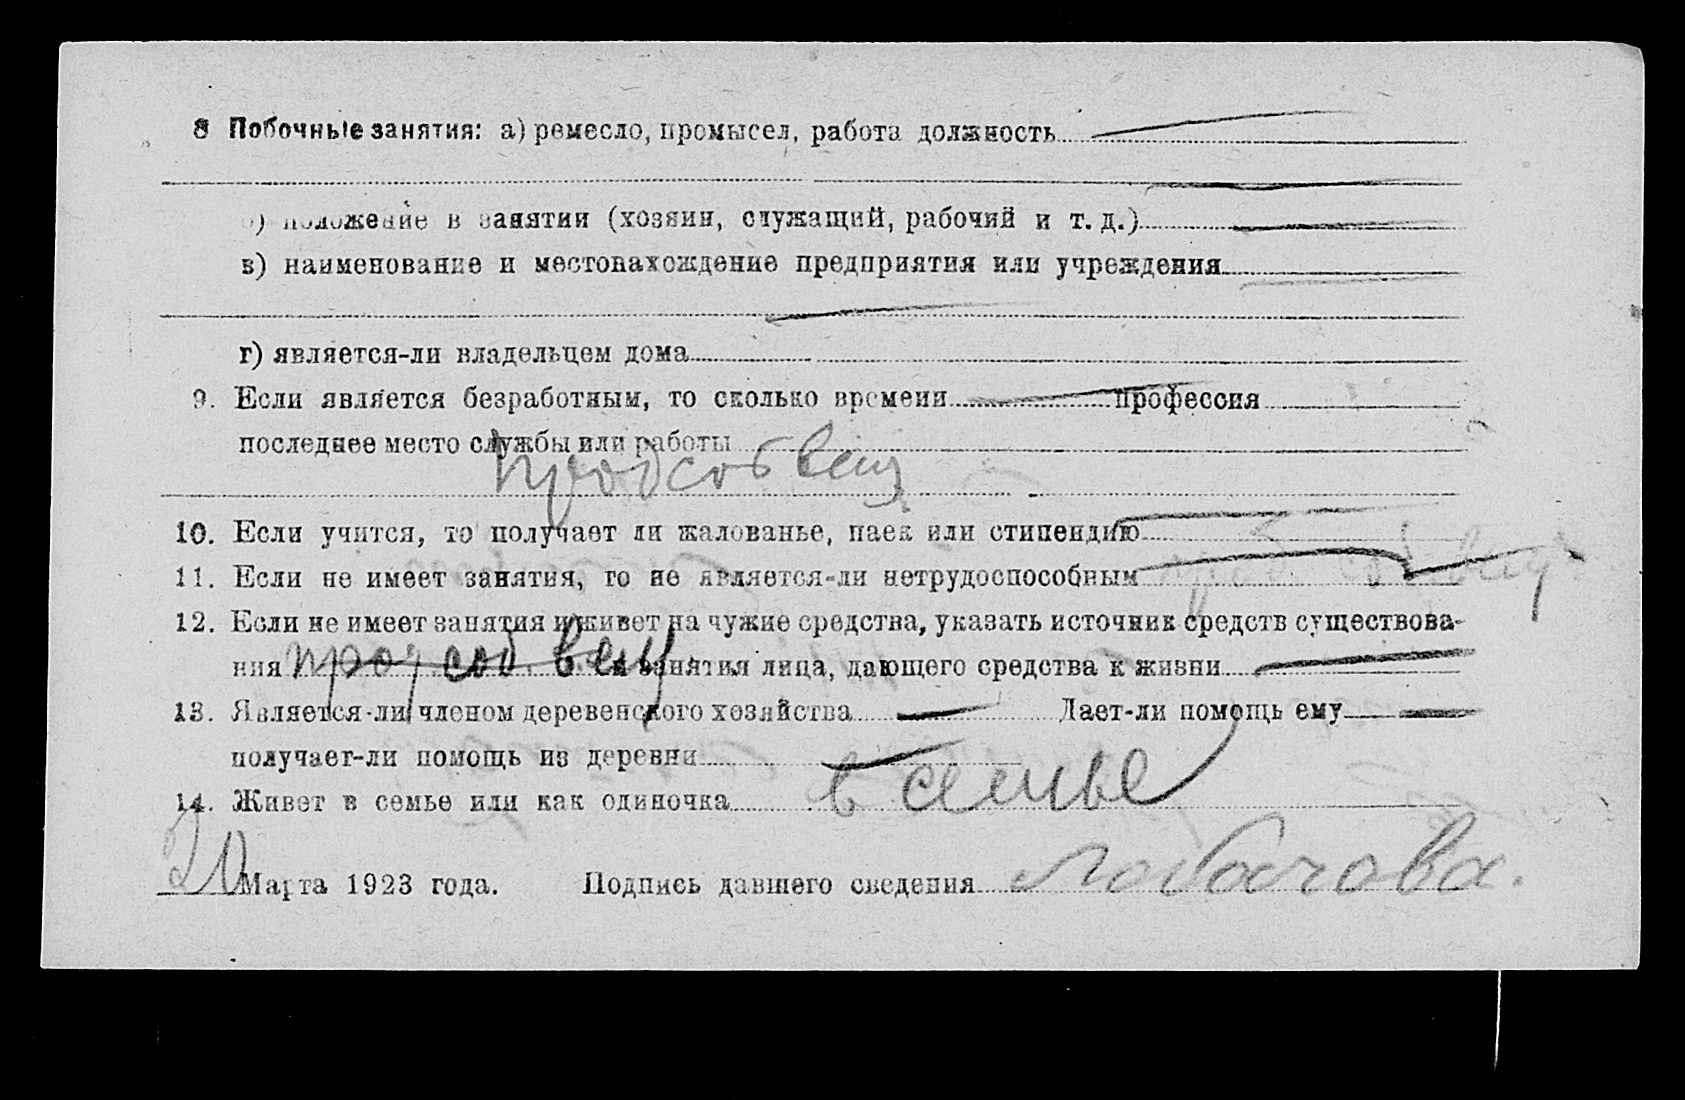 8 Побочные занятия: а) ремесло, промысел, работа должность
б) положение в занятии (хозяин, служащий, рабочий и т. д.)
в) наименование и местонахождение предприятия или учреждения
г) является-ли владельцем дома
9. Если является безработным, то сколько времени профессия
последнее место службы или работы
продсобвещ
10. Если учится, то получает ли жалованье, паек или стипендию
11. Если не имеет занятия, то не является-ли нетрудоспособным
12. Если не имеет занятия и живет на чужие средства, указать источник средств существова-
ния прод соб. вещ и занятия лица, дающего средства к жизни
13. Является-ли членом деревенского хозяйства Дает-ли помощь ему
получает-ли помощь из деревни
14. Живет в семье или как одиночка в семье
20 Марта 1923 года. Подпись давшего сведения